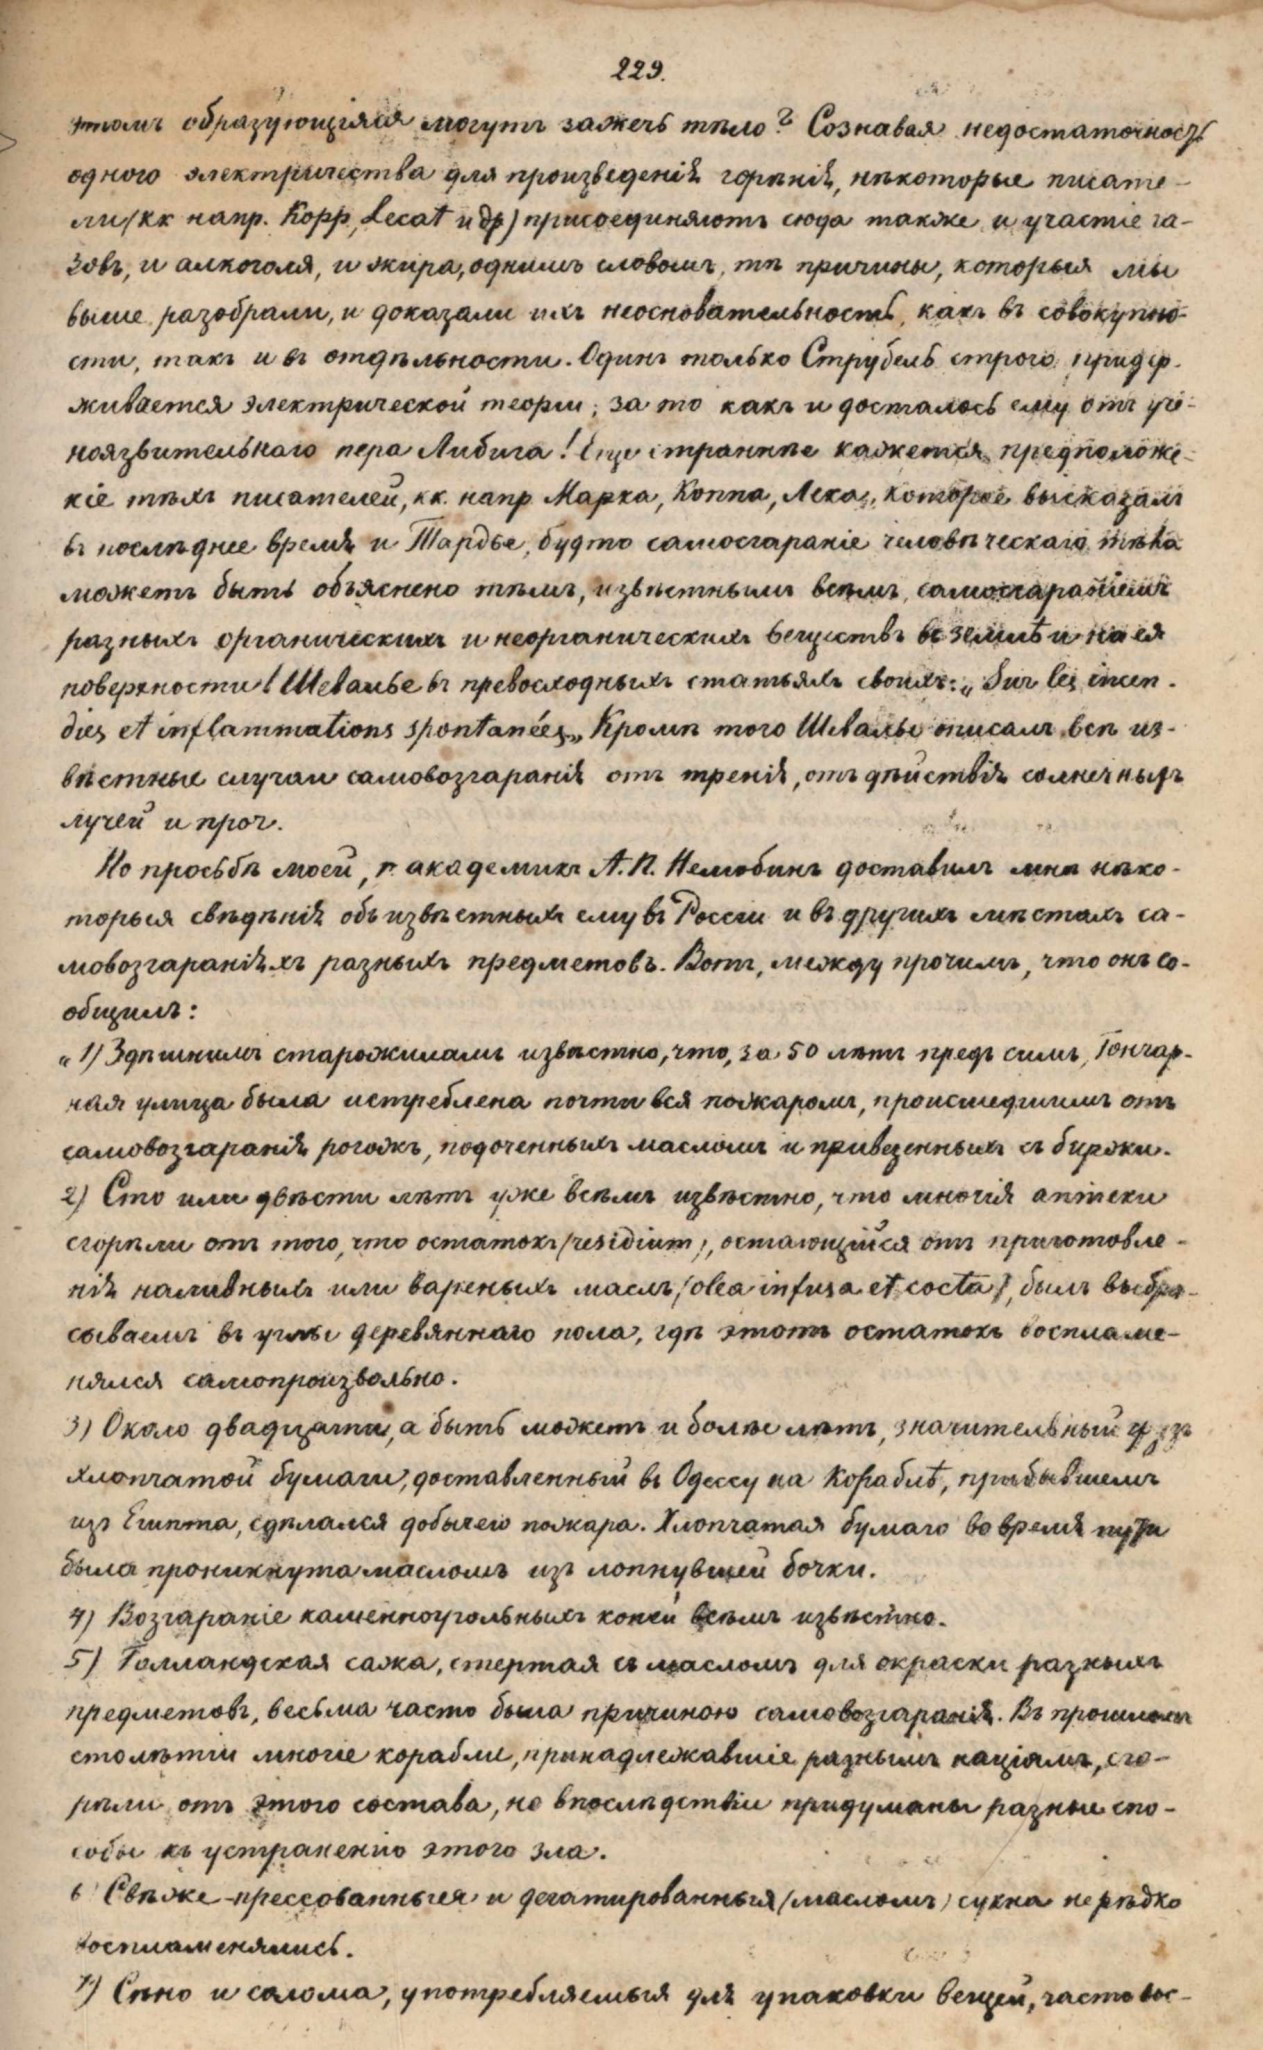 229.
этомъ образующіяся могутъ зажечь тѣло? Сознавая недостаточность
одного электричества для произведенія горѣнія, нѣкоторые писате-
ли (кк напр. Kopp, Lecat и др) присоединяютъ сюда также и участіе га-
зовъ, и алкоголя, и жира, однимъ словомъ, тѣ причины, которыя мы
выше разобрали, и доказали ихъ неосновательность, какъ въ совокупно-
сти, такъ и въ отдѣльности. Одинъ только Струбель строго придер-
живается электрической теоріи; за то какъ и досталось ему отъ уче-
ноязвительнаго пера Либига! Еще страннѣе кажется предположе-
ніе тѣхъ писателей, кк. напр Марка, Коппа, Лека, которое высказалъ
въ послѣднее время и Тардье, будто самосгараніе человѣческаго тѣла
можетъ быть объяснено тѣмъ, извѣстнымъ всѣмъ, самосгараніемъ
разныхъ органическихъ и неорганическихъ веществъ въ землѣ и на ея
поверхности (Шевалье въ превосходныхъ статьяхъ своихъ: „Sur les incen-
dies et inflammations spontanées„ Кромѣ того Шевалье описалъ всѣ из-
вѣстные случаи самовозгаранія отъ тренія, отъ дѣйствія солнечныхъ
лучей и проч.
По просьбѣ моей, г. академикъ А. П. Нелюбинъ доставилъ мнѣ нѣко-
торыя свѣдѣнія объ извѣстныхъ ему въ Россіи и въ другихъ мѣстахъ са-
мовозгараніяхъ разныхъ предметовъ. Вотъ, между прочимъ, что онъ со-
общилъ:
„1) Здѣшнимъ старожиламъ извѣстно, что, за 50 лѣтъ предъ симъ, Гончар-
ная улица была истреблена почти вся пожаромъ, происшедшимъ отъ
самовозгаранія рогожъ, подоченныхъ масломъ и привезенныхъ съ биржи.
2) Сто или двѣсти лѣтъ уже всѣмъ извѣстно, что многія аптеки
сгорѣли отъ того, что остатокъ (residium), остающійся отъ приготовле-
нія наливныхъ или вареныхъ маслъ (olea infusa et cocta), былъ выбра-
сываемъ въ углы деревяннаго пола, гдѣ этотъ остатокъ воспламе-
нялся самопроизвольно.
3) Около двадцати, а быть можетъ и болѣе лѣтъ, значительный грузъ
хлопчатой бумаги, доставленный въ Одессу на кораблѣ, прибывшемъ
изъ Египта, сдѣлался добычею пожара. Хлопчатая бумага во время пути
была проникнута масломъ изъ лопнувшей бочки.
4) Возгараніе каменноугольныхъ копей всѣмъ извѣстно.
5) Голландская сажа, стертая съ масломъ для окраски разныхъ
предметовъ, весьма часто была причиною самовозгаранія. Въ прошломъ
столѣтіи многіе корабли, принадлежавшіе разнымъ націямъ, сго-
рѣли отъ этого состава, но впослѣдствіи придуманы разные спо-
собы къ устраненію этого зла.
6 Свѣже-прессованныя и дегатированныя (масломъ) сукна нерѣдко
воспламенялись.
7) Сѣно и солома, употребляемыя для упаковки вещей, часто вос-